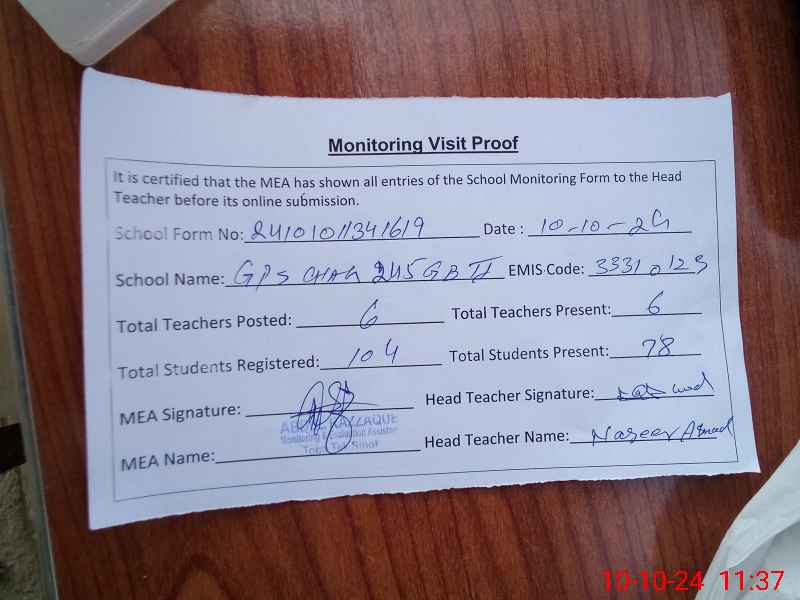 Monitoring Visit Proof
It is certified that the MEA has shown all entries of the School Monitoring Form to the Head
Teacher before its online submission.
School Form No: 2410101341619 Date : 10-10-24
School Name: GPS CHAK 245 GB II EMIS Code: 33310123
Total Teachers Posted: 6 Total Teachers Present: 6
Total Students Registered: 104 Total Students Present: 78
MEA Signature: Head Teacher Signature:
Monitoring & Evaluation Assistant
MEA Name: Head Teacher Name: Naseer Ahmad
10-10-24 11:37